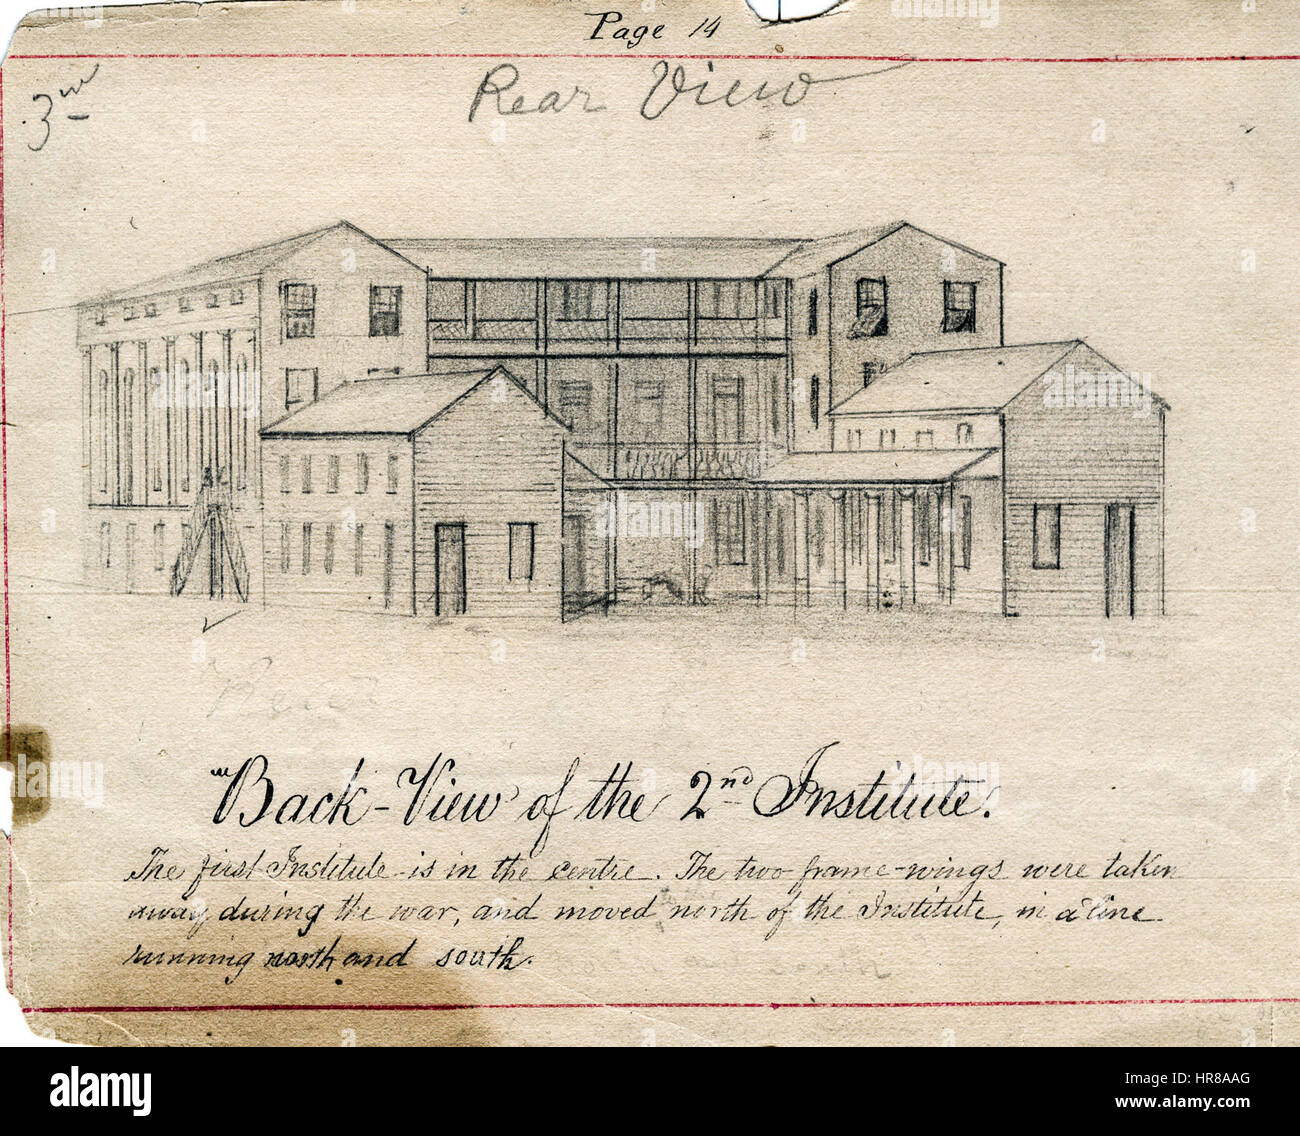 Page 14
3rd
Rear View
"Back-View of the 2nd Institute.
The first Institute is in the centre. The two frame-wings were taken
away, during the war, and moved north of the Institute, in a line
running north and south.
alamy
Image ID: HR8AAG
www.alamy.com